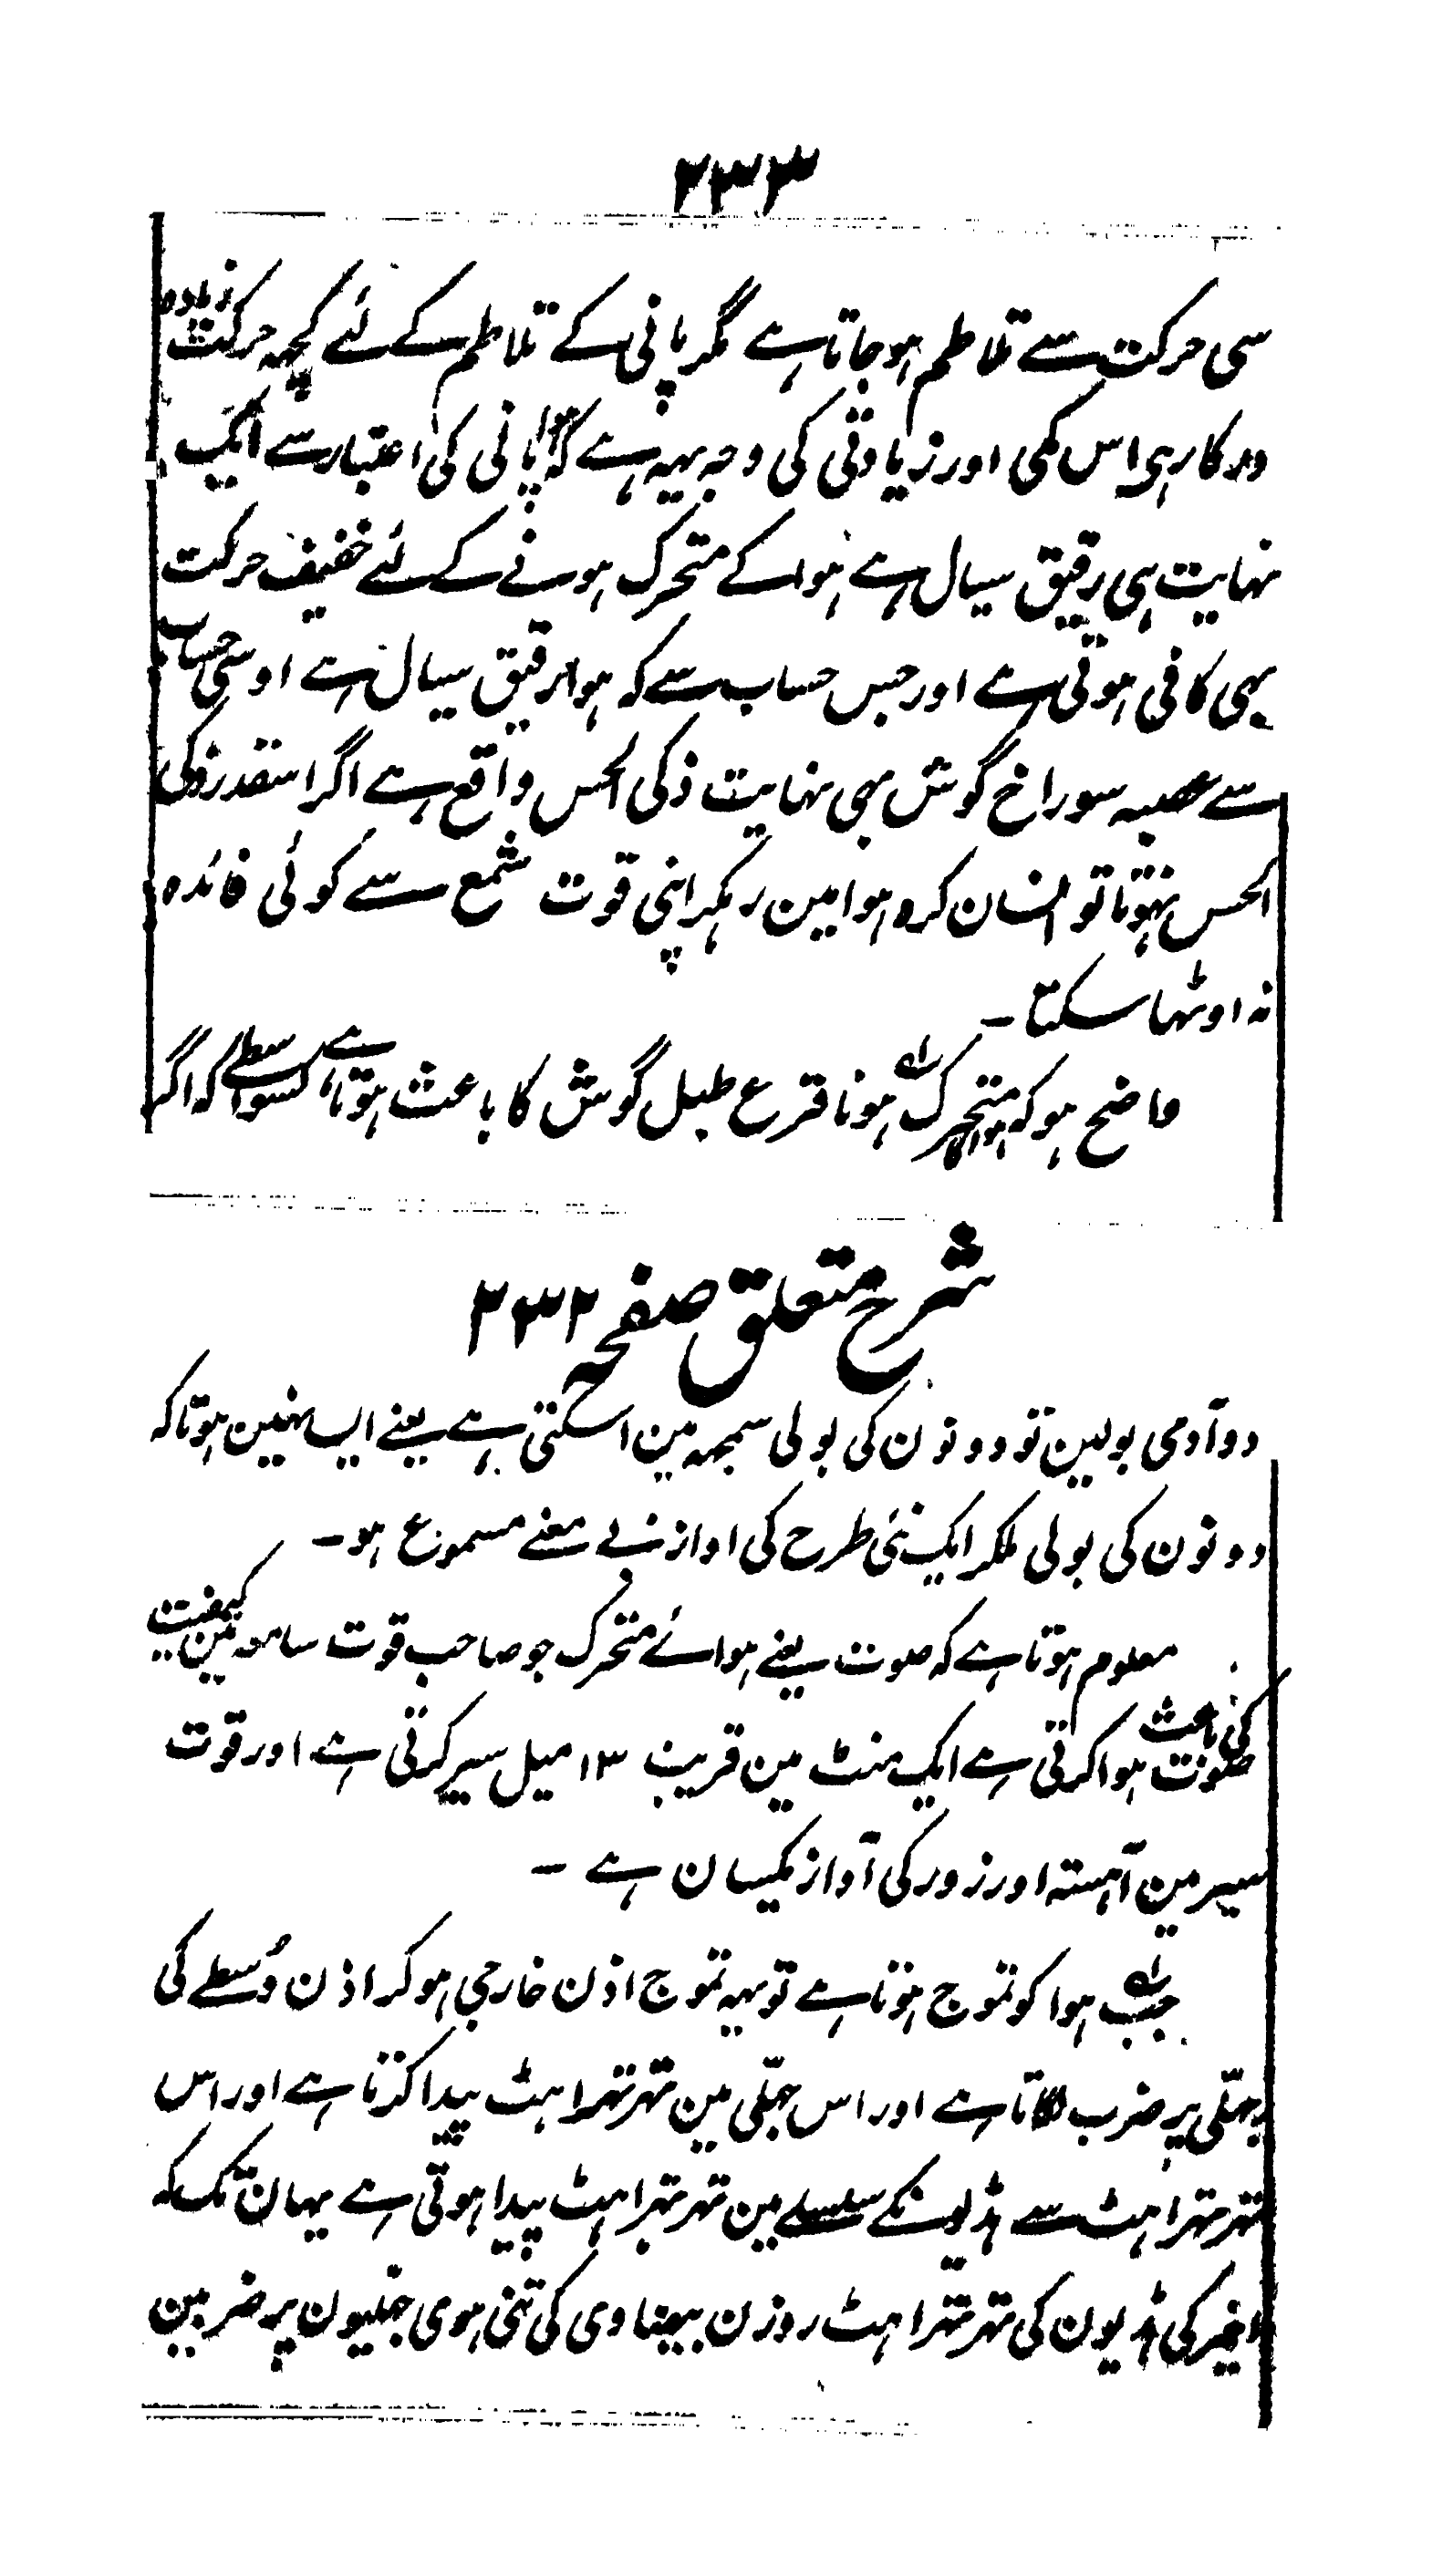 ۲۳۳
سی حرکت سے تلاطم ہو جاتا ہے مگر پانی کے تلاطم کے لئے کچہہ حرکت زیادہ
درکار ہی اس کمی اور زیادتی کی وجہ یہہ ہے کہ ہوا پانی کی اعتبار سے ایک
نہایت ہی رقیق سیال ہے ہوا کے متحرک ہونے کے لئے خفیف حرکت
بہی کافی ہوتی ہے اور جس حساب سے کہ ہوا رقیق سیال ہے اوسی حساب
سے عصبہ سوراخ گوش بہی نہایت ذکی الحس واقع ہے اگر اسقدر ذکی
الحس نہوتا تو انسان کرہ ہوا مین رہکر اپنی قوت سمع سے کوئی فائدہ
نہ اوٹہا سکتا ۔
واضح ہو کہ ہوا کا متحرک ہونا قرع طبل گوش کا باعث ہوتا ہے کسواسطے کہ اگر
شرح متعلق صفحہ ۲۳۲
دو آدمی بولین تو دونون کی بولی سمجہہ مین آسکتی ہے یعنے ایسا نہین ہوتا کہ
دونون کی بولی ملکر ایک نئی طرح کی اواز بے معنے مسموع ہو ۔
معلوم ہوتا ہے کہ صوت یعنے ہوائے متحرک جو صاحب قوت سامعہ مین کیفیت
صوت کی باعث ہوا کرتی ہے ایک منٹ مین قریب ۱۳ میل سیر کرتی ہے اور قوت
سیر مین آہستہ اور زور کی آواز یکسان ہے ۔
جب ہوا کو تموج ہوتا ہے تو یہہ تموج اذن خارجی ہو کر اذن وُسطے کی
جہلّی پر ضرب لگاتا ہے اور اس جہلّی مین تہرتہراہٹ پیدا کرتا ہے اور اس
تہرتہراہٹ سے ہڈیونکے سلسلے مین تہرتہراہٹ پیدا ہوتی ہے یہان تک کہ
اخیر کی ہڈیون کی تہرتہراہٹ روزن بیضاوی کی تنی ہوی جہلیون پر ضربین